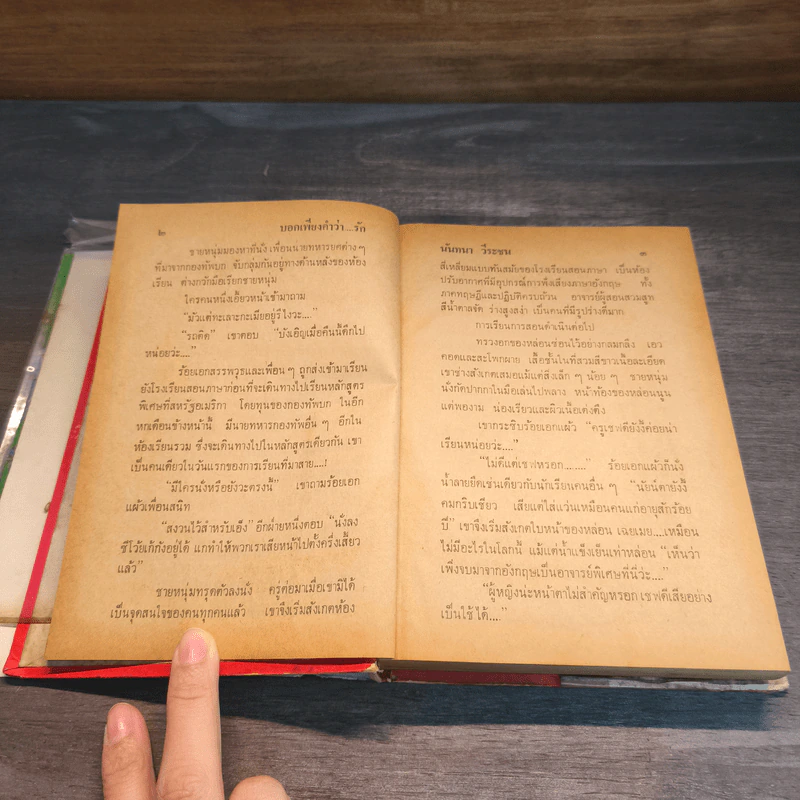 ๒ บอกเพียงคำว่า...รัก
ชายหนุ่มมองหาที่นั่ง เพื่อนนายทหารยศต่าง ๆ
ที่มาจากกองทัพบก จับกลุ่มกันอยู่ทางด้านหลังของห้อง
เรียน ต่างกวักมือเรียกชายหนุ่ม
ใครคนหนึ่งเอี้ยวหน้าเข้ามาถาม
“มัวแต่ทะเลาะกะเมียอยู่รึไงวะ....”
“รถติด” เขาตอบ “บังเอิญเมื่อคืนนี้ดึกไป
หน่อยว่ะ....”
ร้อยเอกสรรพวุธและเพื่อน ๆ ถูกส่งเข้ามาเรียน
ยังโรงเรียนสอนภาษาก่อนที่จะเดินทางไปเรียนหลักสูตร
พิเศษที่สหรัฐอเมริกา โดยทุนของกองทัพบก ในอีก
หกเดือนข้างหน้านี้ มีนายทหารกองทัพอื่น ๆ อีกใน
ห้องเรียนรวม ซึ่งจะเดินทางไปในหลักสูตรเดียวกัน เขา
เป็นคนเดียวในวันแรกของการเรียนที่มาสาย....!
“มีใครนั่งหรือยังวะตรงนี้” เขาถามร้อยเอก
แผ้วเพื่อนสนิท
“สงวนไว้สำหรับเอ็ง” อีกฝ่ายหนึ่งตอบ “นั่งลง
ซีโว้ยเก้กังอยู่ได้ แกทำให้พวกเราเสียหน้าไปตั้งครึ่งเสี้ยว
แล้ว”
ชายหนุ่มทรุดตัวลงนั่ง ครู่ต่อมาเมื่อเขามิได้
เป็นจุดสนใจของคนทุกคนแล้ว เขาจึงเริ่มสังเกตห้อง
นันทนา วีระชน ๓
สี่เหลี่ยมแบบทันสมัยของโรงเรียนสอนภาษา เป็นห้อง
ปรับอากาศที่มีอุปกรณ์การฟังเสียงภาษาอังกฤษ ทั้ง
ภาคทฤษฎีและปฏิบัติครบถ้วน อาจารย์ผู้สอนสวมสูท
สีน้ำตาลจัด ร่างสูงสง่า เป็นคนที่มีรูปร่างดีมาก
การเรียนการสอนดำเนินต่อไป
ทรวงอกของหล่อนซ่อนไว้อย่างกลมกลึง เอว
คอดและสะโพกผาย เสื้อชั้นในที่สวมสีขาวเนื้อละเอียด
เขาช่างสังเกตเสมอแม้แต่สิ่งเล็ก ๆ น้อย ๆ ชายหนุ่ม
นั่งกัดปากกาในมือเล่นไปพลาง หน้าท้องของหล่อนนูน
แต่พองาม น่องเรียวและผิวเนื้อเต่งตึง
เขากระซิบร้อยเอกแผ้ว “ครูเชฟดียังงี้ค่อยน่า
เรียนหน่อยว่ะ....”
“ไม่ดีแต่เชฟหรอก........” ร้อยเอกแผ้วก็นั่ง
น้ำลายยืดเช่นเดียวกับนักเรียนคนอื่น ๆ “นัยน์ตายังงี้
คมกริบเชียว เสียแต่ใส่แว่นเหมือนคนแก่อายุสักร้อย
ปี” เขาจึงเริ่มสังเกตใบหน้าของหล่อน เฉยเมย....เหมือน
ไม่มีอะไรในโลกนี้ แม้แต่น้ำแข็งเย็นเท่าหล่อน “เห็นว่า
เพิ่งจบมาจากอังกฤษเป็นอาจารย์พิเศษที่นี่ว่ะ....”
“ผู้หญิงน่ะหน้าตาไม่สำคัญหรอก เชฟดีเสียอย่าง
เป็นใช้ได้....”